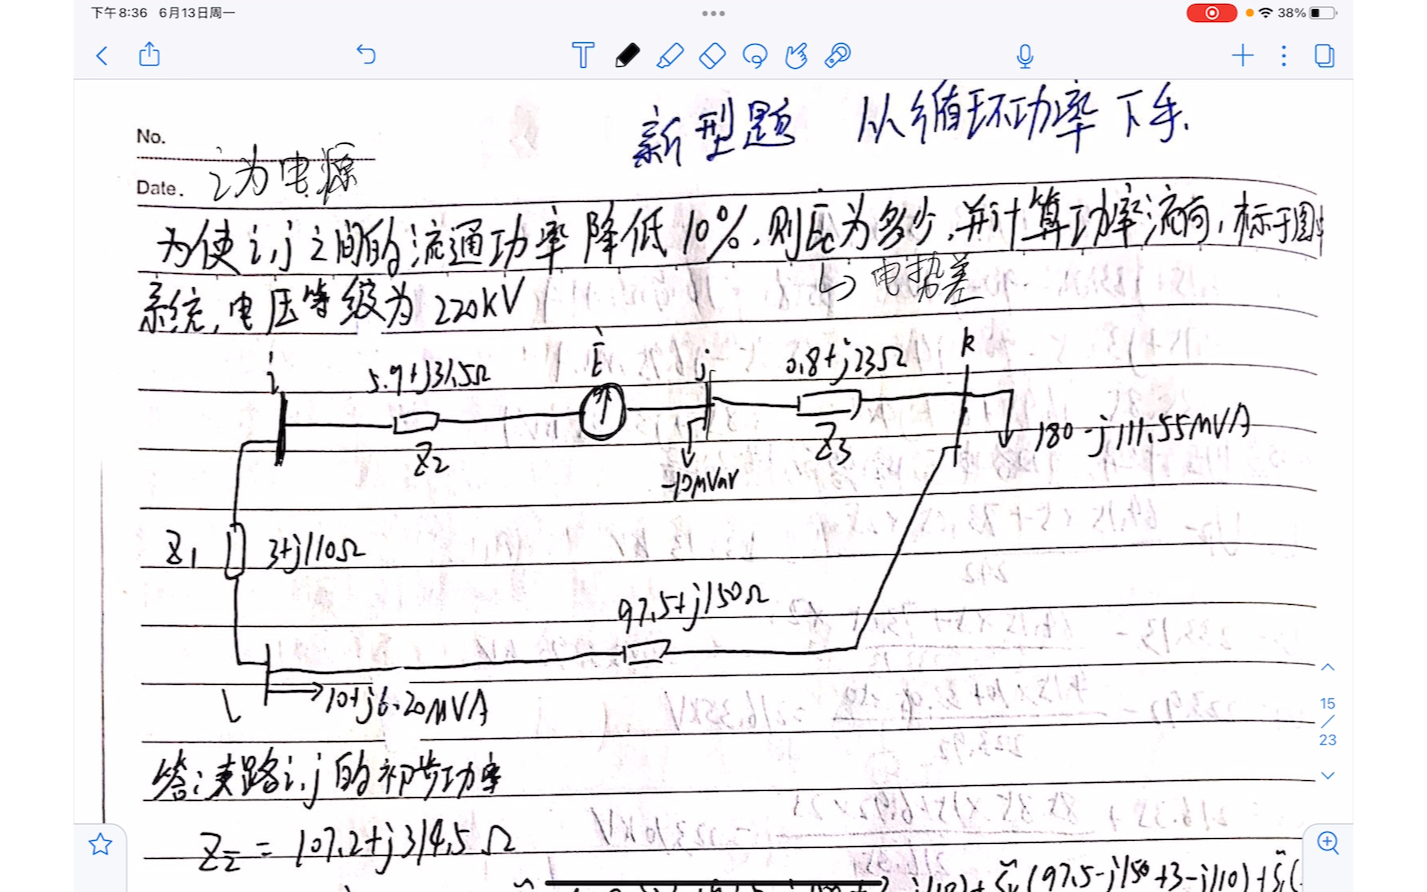 下午8:36 6月13日周一
38%
新型题 从循环功率下手.
No.
Date. i为电源
为使i,j之间的流通功率降低10%,则Ėc为多少,并计算功率流向,标于图中
↳电势差
系统,电压等级为220kV
i
5.9+j31.5Ω
Ė
j
0.8+j23Ω
k
Z2
Z3
180-j111.55MVA
-10MVar
Z1
3+j110Ω
97.5+j150Ω
10+j6.20MVA
15
/
23
答:支路i,j的初步功率
ZΣ = 107.2+j314.5Ω
(97.5-j150+3-j110)+